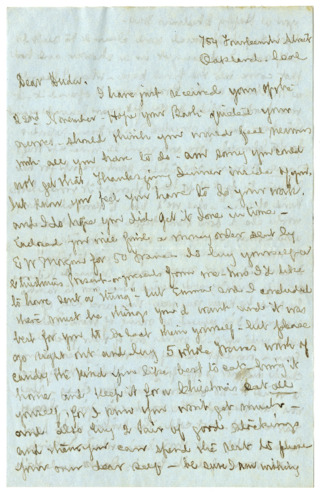 754 Fourteenth Street
Oakland - Cal
Dear Hilda.
I have just received your
November - Hope your Bach quieted your
nerves - should think you would feel nervous
with all you have to do - am sorry you could
not get that Thanksgiving dinner inside of you,
but know you feel you have to do your work,
and I do hope you did get it done in time -
Enclosed you will find a money order sent by
E W Morgan for 50 francs to buy yourself a
Christmas from me - Now I'd like
to have sent a "thing" - but Emma and I concluded
there must be things you'd want and it was
best for you to select them yourself - but please
go right out and buy 5 whole francs worth of
candy the kind you like best to eat - bring it
home and keep it for a Christmas eat all
yourself, for I know you won't get much -
and also buy 1 pair of good stockings
and then you can spend the rest to please
your own dear self - Be sure I am wishing